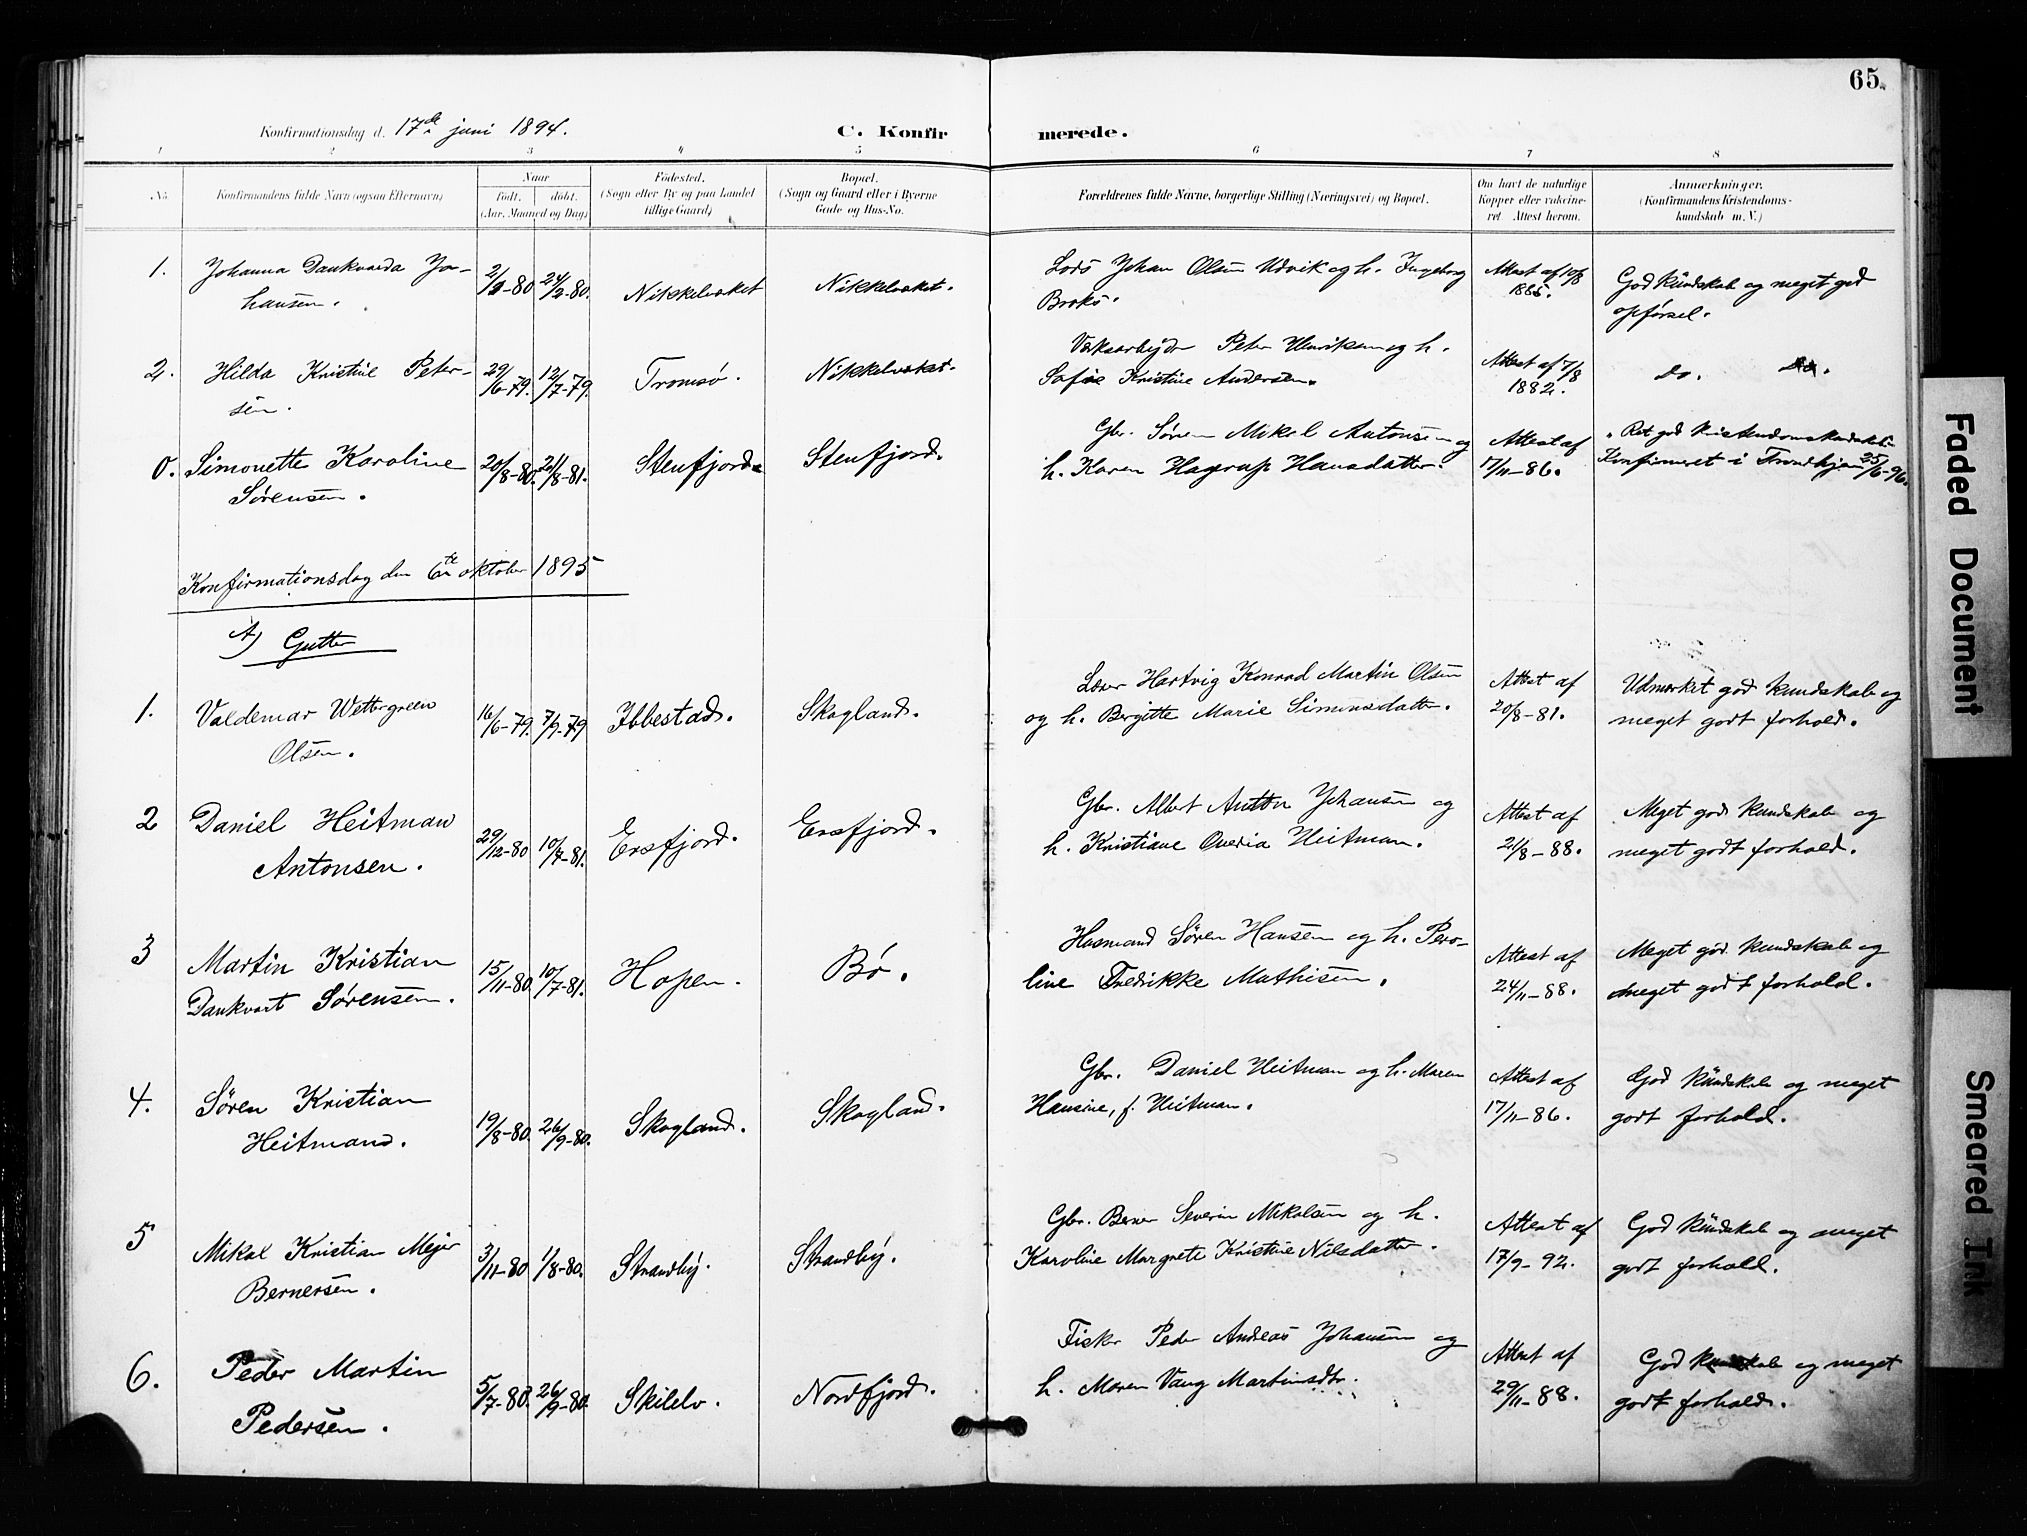 65.
Konfirmationsdag d. 17de juni 1894.
C. Konfirmerede.
1 2 3 4 5 6 7 8
No.
Konfirmandens fulde Navn (ogsaa Efternavn)
Naar
født. døbt.
(Aar, Maaned og Dag)
Fødested.
(Sogn eller By og paa Landet
tillige Gaard)
Bopæl.
(Sogn og Gaard eller i Byerne
Gade og Hus-No.
Forældrenes fulde Navne, borgerlige Stilling (Næringsvei) og Bopæl.
Om havt de naturlige
Kopper eller vakcine-
ret Attest herom.
Anmærkninger.
(Konfirmandens Kristendoms-
kundskab m. V.)
1. Johanna Dankvarda Jo-
hansen.
2/2-80 24/2-80. Nikkelverket Nikkelverket.
Lods Johan Olsen Udvik og h. Ingeborg
Broks.
Attest af 10/8
1885.
God kundskab og meget god
opførsel.
2. Hilda Kristine Peter-
sen.
29/6-79. 12/7-79. Tromsø. Nikkelverket.
Verksarbejder Peter Henriksen og h.
Sofie Kristine Andersen.
Attest af 7/8
1882.
do. do.
0. Simonette Karoline
Sørensen.
20/8-80. 21/8-81. Stenfjord Stenfjord.
Gbr. Søren Mikal Antonsen og
h. Karen Hagerup Hansdatter.
Attest af
17/11-86.
Ret god kristendomskundskab.
Konfirmeret i Trondhjem 25/6-96.
Konfirmationsdag den 6te oktober 1895
A) Gutter
1. Valdemar Wettergreen
Olsen.
16/6-79. 7/9-79 Ibbestad. Skogland.
Lærer Hartvig Konrad Martin Olsen
og h. Bergitte Marie Simonsdatter.
Attest af
20/8-81.
Udmerket god kundskab og
meget godt forhold.
2 Daniel Heitman
Antonsen.
29/12-80 10/7-81. Ersfjord. Ersfjord.
Gbr. Albet Anton Johansen og
h. Kristiane Overia Heitman.
Attest af
21/8-88.
Meget god kundskab og
meget godt forhold.
3 Martin Kristian
Dankvart Sørensen.
15/11-80. 10/7-81. Hopen. Bø.
Husmand Søren Hansen og h. Pero-
line Fredrikke Mathisen.
Attest af
24/11-88.
Meget god kundskab og
meget godt forhold.
4. Søren Kristian
Heitmand.
19/8-80. 26/9-80. Skogland. Skogland.
Gbr. Daniel Heitman og h. Maren
Hansine, f. Heitman.
Attest af
17/11-86.
God kundskab og meget
godt forhold.
5 Mikal Kristian Mejer
Bernersen.
3/11-80 1/8-80. Strandby. Strandby.
Gbr. Berner Severin Mikalsen og h.
Karoline Margrete Kristine Nilsdatter.
Attest af
17/9-92.
God kundskab og meget
godt forhold.
6. Peder Martin
Pedersen.
5/7-80. 26/9-80. Skilelv. Nordfjord.
Fisker Peder Andreas Johansen og
h. Maren Vang Martinsdtr.
Attest af
29/11-88.
God kundskab og meget
godt forhold.
Faded Document
Smeared Ink